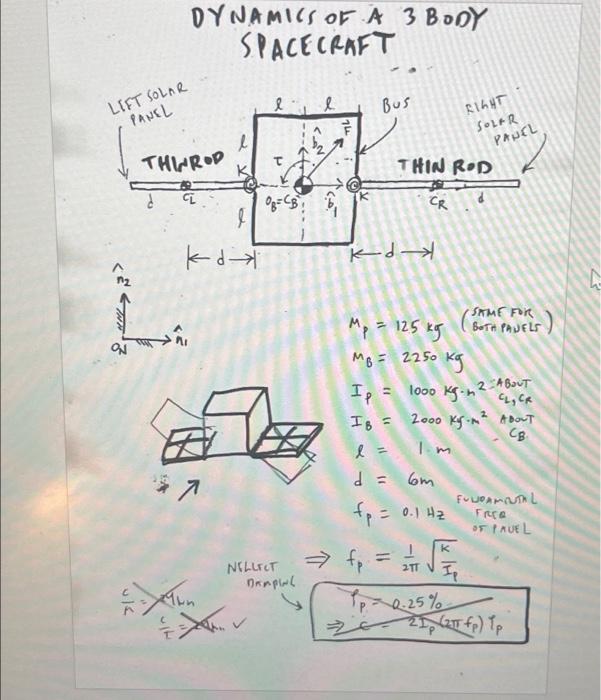 DYNAMICS OF A 3 BODY
SPACECRAFT
LEFT SOLAR
PANEL
l l
BUS
RIGHT
SOLAR
PANEL
THIN ROD
l
K
τ
b̂2
F⃗
THIN ROD
d
CL
OB=CB
b̂1
K
CR
d
l
d
d
n̂2
ON
n̂1
Mp = 125 kg (SAME FOR
BOTH PANELS)
MB = 2250 kg
Ip = 1000 kg·m² ABOUT
CL, CR
IB = 2000 kg·m² ABOUT
CB
l = 1 m
d = 6m
fp = 0.1 Hz
FUNDAMENTAL
FREQ
OF PANEL
NEGLECT
DAMPING
⇒ fp = 1/2π √K/Ip
ζp = 0.25%
⇒ C = 2Ip(2πfp)ζp